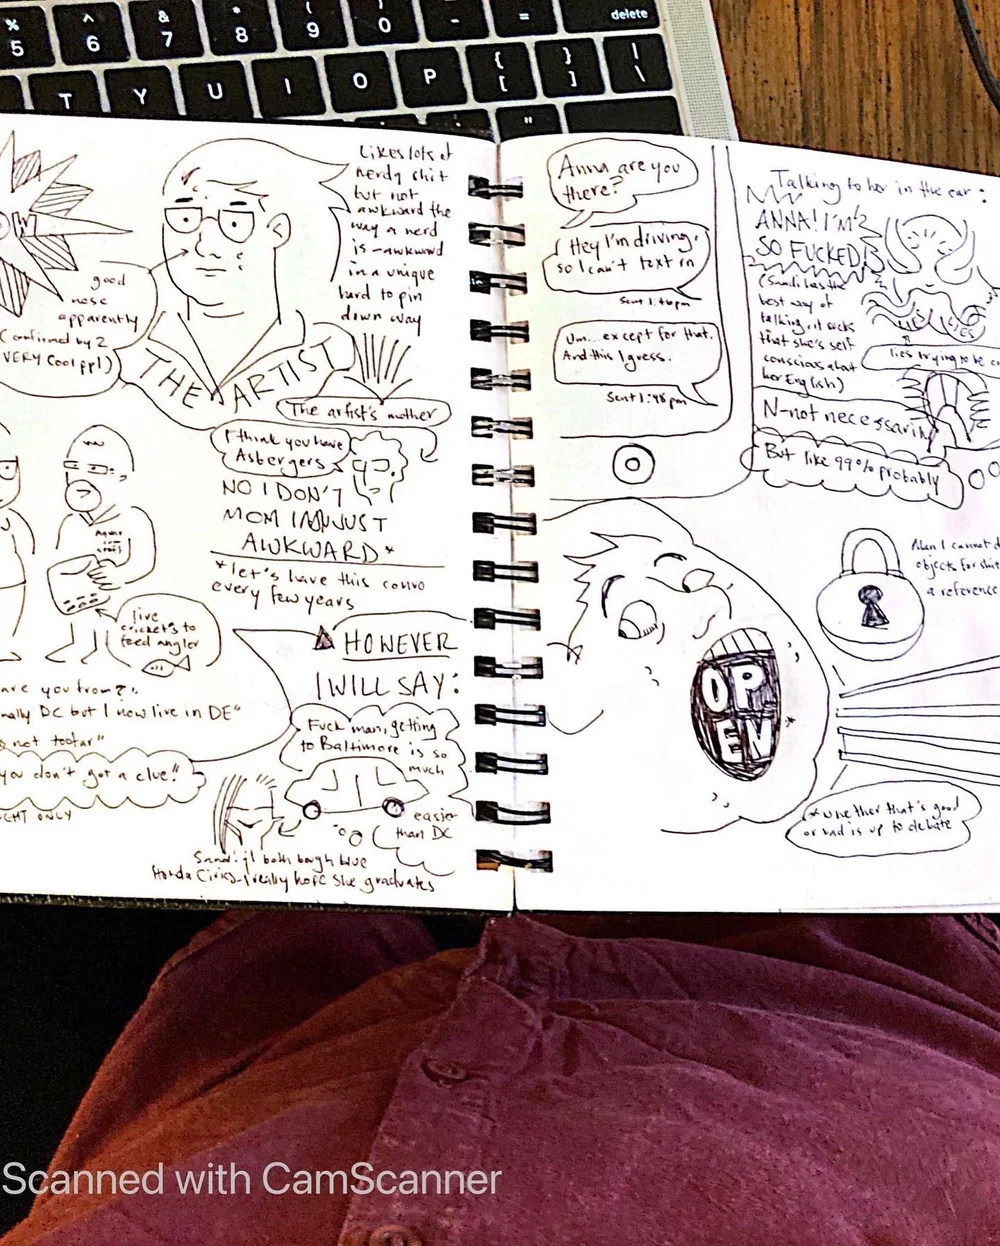 %
5
^
6
&
7
*
8
(
9
)
0
-
=
delete
T
Y
U
I
O
P
{
[
}
]
|
\
"
good
nose
apparently
(Confirmed by 2
VERY Cool ppl)
Likes lots of
nerdy shit
but not
awkward the
way a nerd
is - awkward
in a unique
hard to pin
down way
THE ARTIST
The artist's mother
I think you have
Asbergers
NO I DON'T
MOM I'M JUST
AWKWARD*
*let's have this convo
every few years
live
crickets to
feed angler
are you from?"
nally DC but I now live in DE"
not too far"
you don't got a clue!"
GHT ONLY
HOWEVER
I WILL SAY:
Fuck man, getting
to Baltimore is so
much
easier
than DC
Sandi & I both bough blue
Honda Civics - I really hope she graduates
Anna are you
there?
Hey I'm driving,
so I can't text rn
Sent 1:46pm
Um... except for that.
And this I guess.
Sent 1:48pm
Talking to her in the car:
ANNA! I'M
SO FUCKED
(Sandi has the
best way of
talking, it sucks
that she's self
conscious about
her English)
LIES
lies trying to be c
N-not necessarily
But like 99% probably
OPEN
*
Man I cannot d
objects for shit
a reference
*whether that's good
or bad is up to debate
Scanned with CamScanner